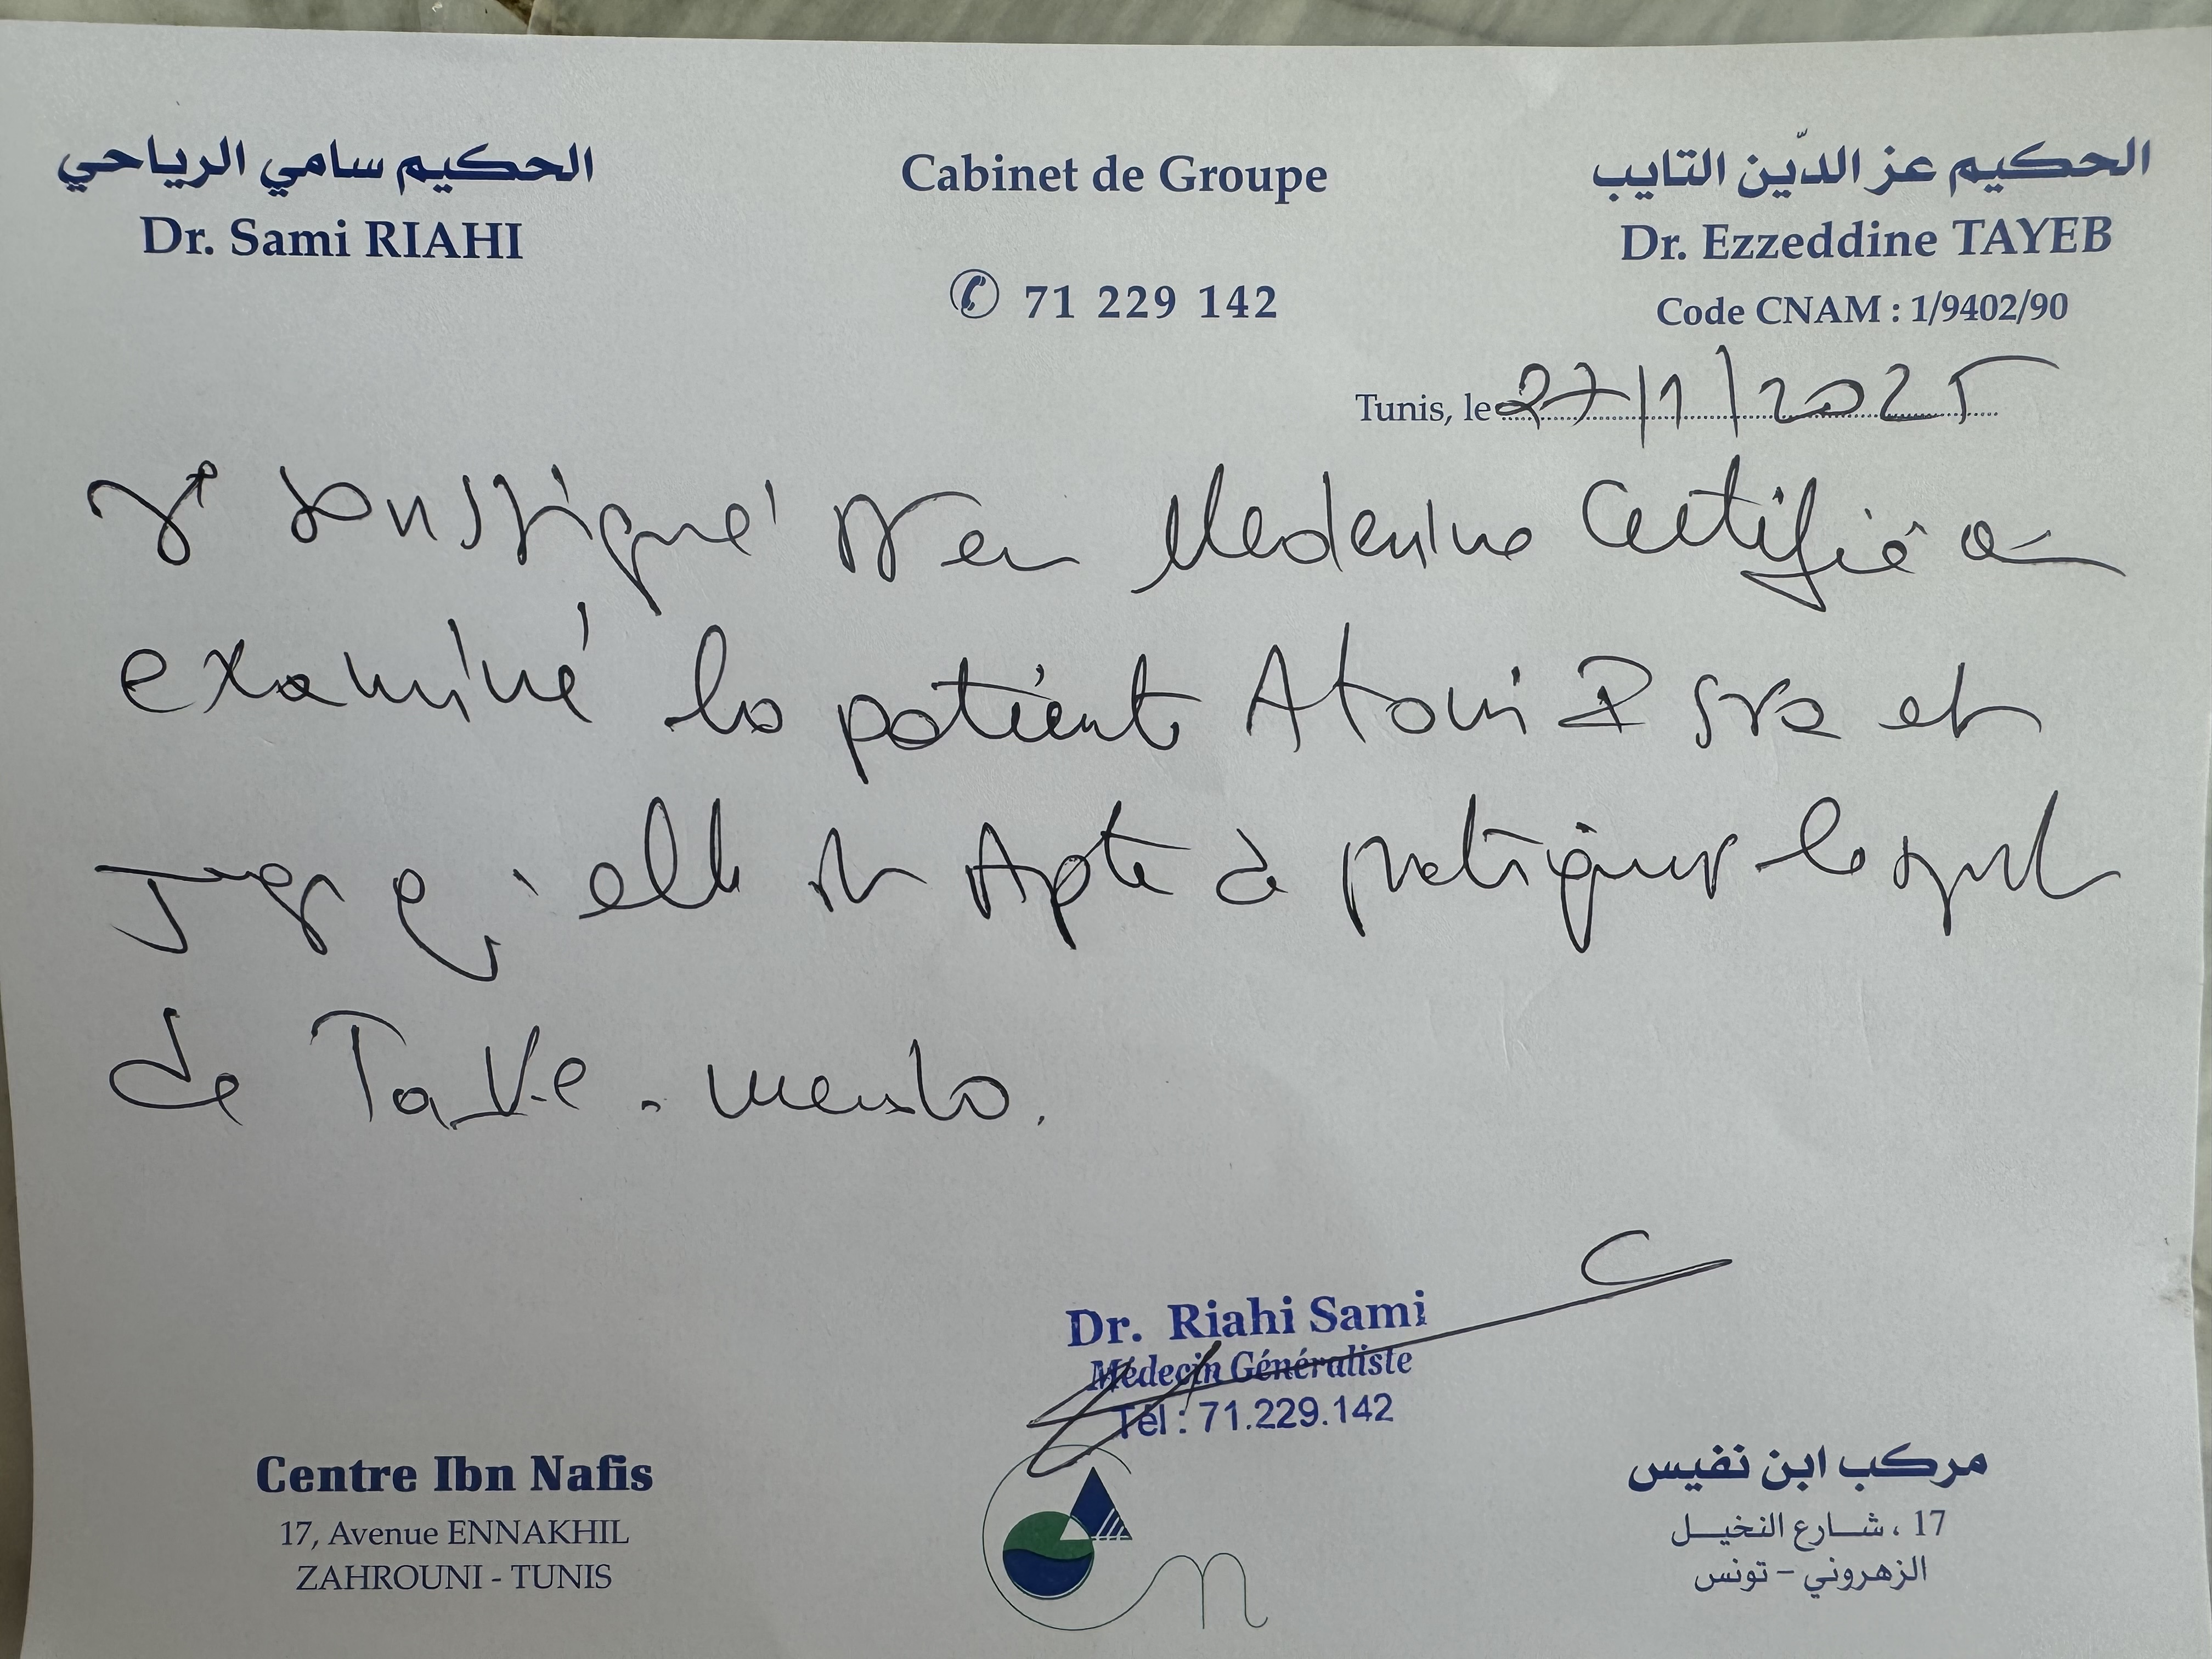 الحكيم سامي الرياحي
Dr. Sami RIAHI
Cabinet de Groupe
71 229 142
الحكيم عز الدّين التايب
Dr. Ezzeddine TAYEB
Code CNAM : 1/9402/90
Tunis, le 27/1/2025
soussigné Dr en Medecine Certifie a
examiné la patiente Atoui Isra et
juge qu'elle est Apte à pratiquer le sport
de
Dr. Riahi Sami
Médecin Généraliste
Tél : 71.229.142
Centre Ibn Nafis
17, Avenue ENNAKHIL
ZAHROUNI - TUNIS
مركب ابن نفيس
17 ، شارع النخيل
الزهروني - تونس